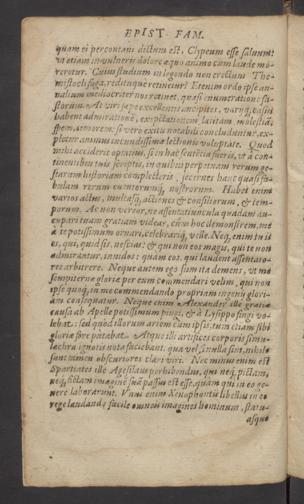 EPIST. FAM.
quam ei percontanti dictum est, Clypeum esse saluum:
ut etiam in vulneris dolore æquo animo cum laude mo-
reretur. Cuius studium in legendo non erectum The-
mistocli fuga, redituque retinetur? Etenim ordo ipse an-
nalium mediocriter nos retinet, quasi enumeratione fa-
storum. At viri sæpe excellentis ancipites, variiq́; casus
habent admirationē, expectationem, lætitiam, molestiā,
spem, timorem: si vero exitu notabili concluduntur, ex-
pletur animus iucundissimæ lectionis voluptate. Quod
mihi acciderit optatius, si in hac sententia fueris, ut à con-
tinentibus tuis scriptis, in quibus perpetuam rerum ge-
starum historiam complecteris, secernas hanc quasi fa-
bulam rerum euentorumq́; nostrorum. Habet enim
varios actus, multasq́; actiones & consiliorum, & tem-
porum. Ac non vereor, ne assentatiuncula quadam au-
cupari tuam gratiam videar, cùm hoc demonstrem, me
à te potissimum ornari, celebrariq́; velle. Neq́; enim tu is
es, qui, quid sis, nescias: & qui non eos magis, qui te non
admirantur, inuidos: quam eos, qui laudent, assentato-
res arbitrere. Neque autem ego sum ita demens, ut me
sempiternæ gloriæ per eum commendari velim, qui non
ipse quoq́; in me commendando propriam ingenij glori-
am consequatur. Neque enim Alexander ille gratiæ
causa ab Apelle potissimum pingi, & à Lysippo fingi vo-
lebat: sed quòd illorum artem cùm ipsis, tum etiam sibi
gloriæ fore putabat. Atque illi artifices corporis simu-
lachra ignotis nota faciebant: quæ vel, si nulla sint, nihilo
sunt tamen obscuriores clari viri. Nec minus enim est
Spartiates ille Agesilaus perhibendus, qui neq́; pictam,
neq́; fictam imaginē suā passus est esse, quàm qui in eo ge-
nere laborarunt. Vnus enim Xenophontis libellus in eo
rege laudando facile omneis imagines hominum, statu-
asque